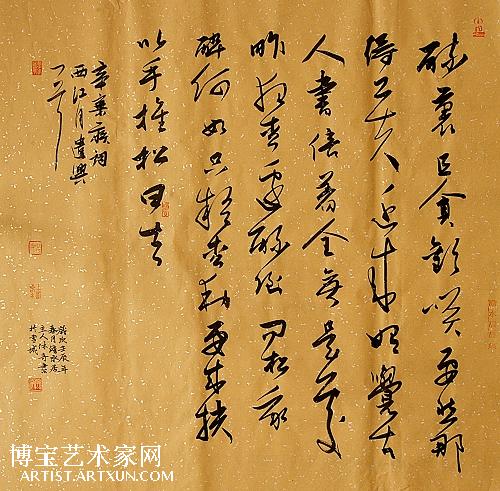 醉裏且貪歡笑要愁那
得工夫近来始覺古
人書信著全無是處
昨夜松邊醉倒問松我
醉何如只疑松動要来扶
以手推松曰去
辛棄疾詞
西江月遣興
歲次壬辰年
春月
主人
書
博宝艺术家网
ARTIST.ARTXUN.COM